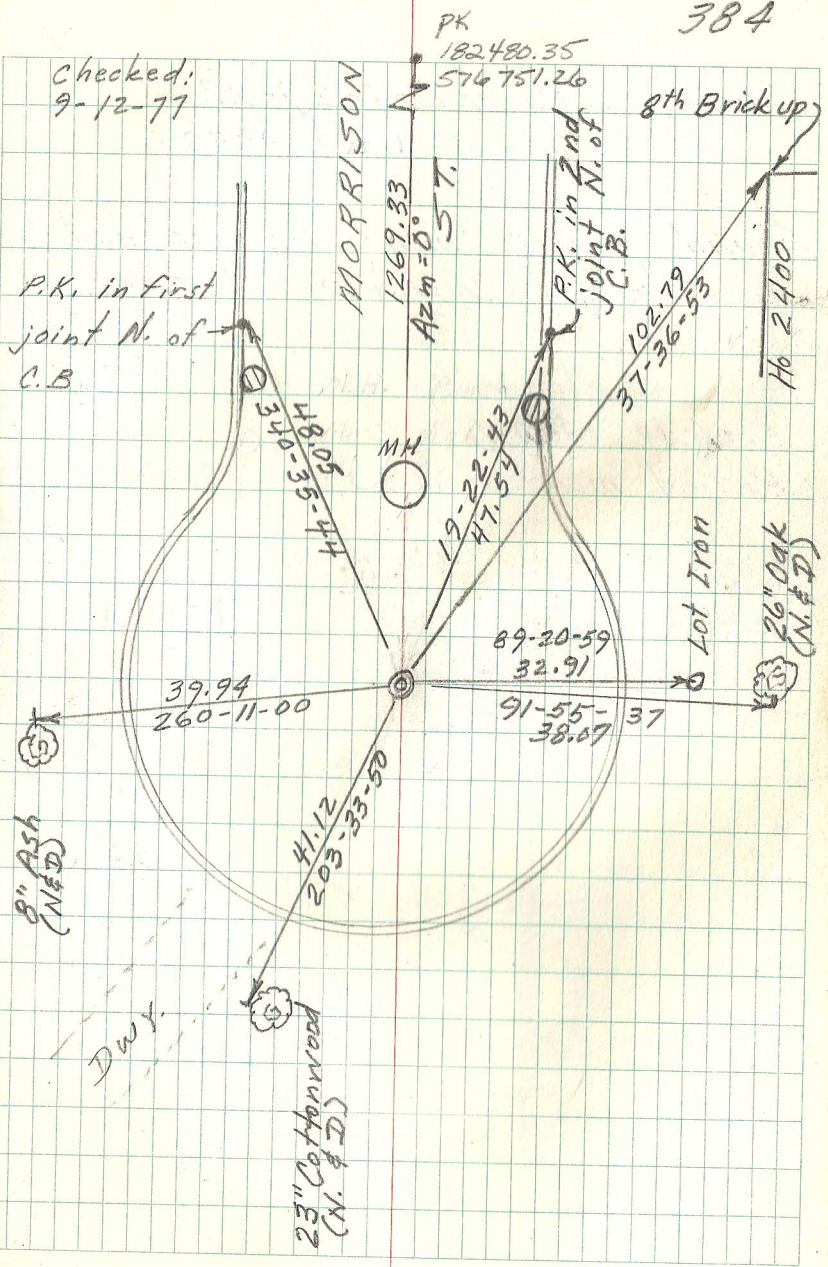 384
PK
182480.35
576751.26
Checked:
9-12-77
8th Brick up
MORRISON
ST.
1269.33
Azm=0°
P.K. in 2nd
joint N. of
C.B.
P.K. in first
joint N. of
C.B
102.79
37-36-53
Ho 2400
48.05
340-35-44
MH
19-22-43
47.54
Lot Iron
26" Oak
(N. & D)
89-20-59
32.91
91-55-37
38.07
39.94
260-11-00
8" Ash
(N&D)
41.12
203-33-50
Dwy.
23" Cottonwood
(N. & D)